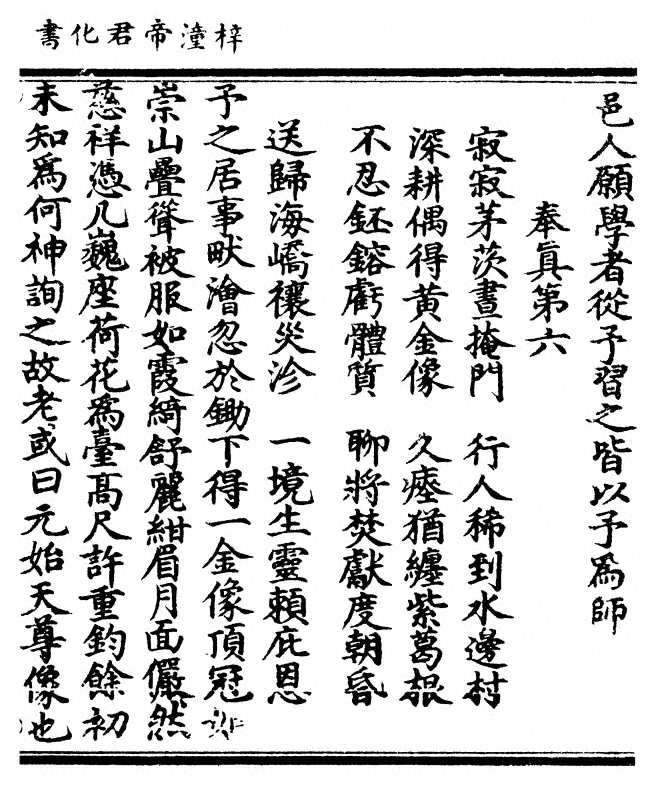 梓潼帝君化書
邑人願學者從予習之皆以予爲師
奉眞第六
寂寂茅茨晝掩門　行人稀到水邊村
深耕偶得黄金像　久瘞猶纏紫葛根
不忍鉟鎔虧體質　聊將焚獻度朝昏
送歸海嶠禳災沴　一境生靈賴庇恩
予之居事畎澮忽於鋤下得一金像頂冠如
崇山疊聳被服如霞綺舒麗紺眉月面儼然
慈祥憑几巍座荷花爲臺高尺許重鈞餘初
未知爲何神詢之故老或曰元始天尊像也